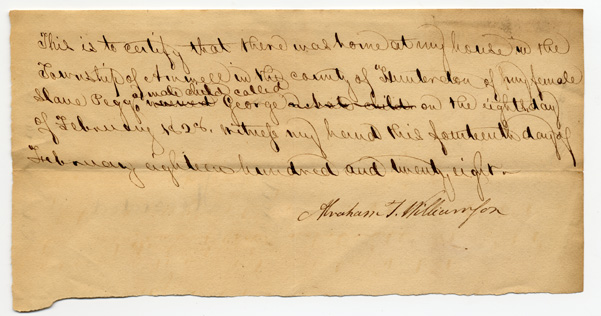 This is to certify that there was borne at my house in the
Township of Amwell in the county of Hunterdon of my female
a male child called
Slave Pegg, George on the eighth day
of February 1828. witness my hand this fourteenth day of
February eighteen hundred and twenty eight.
Abraham T. Williamson